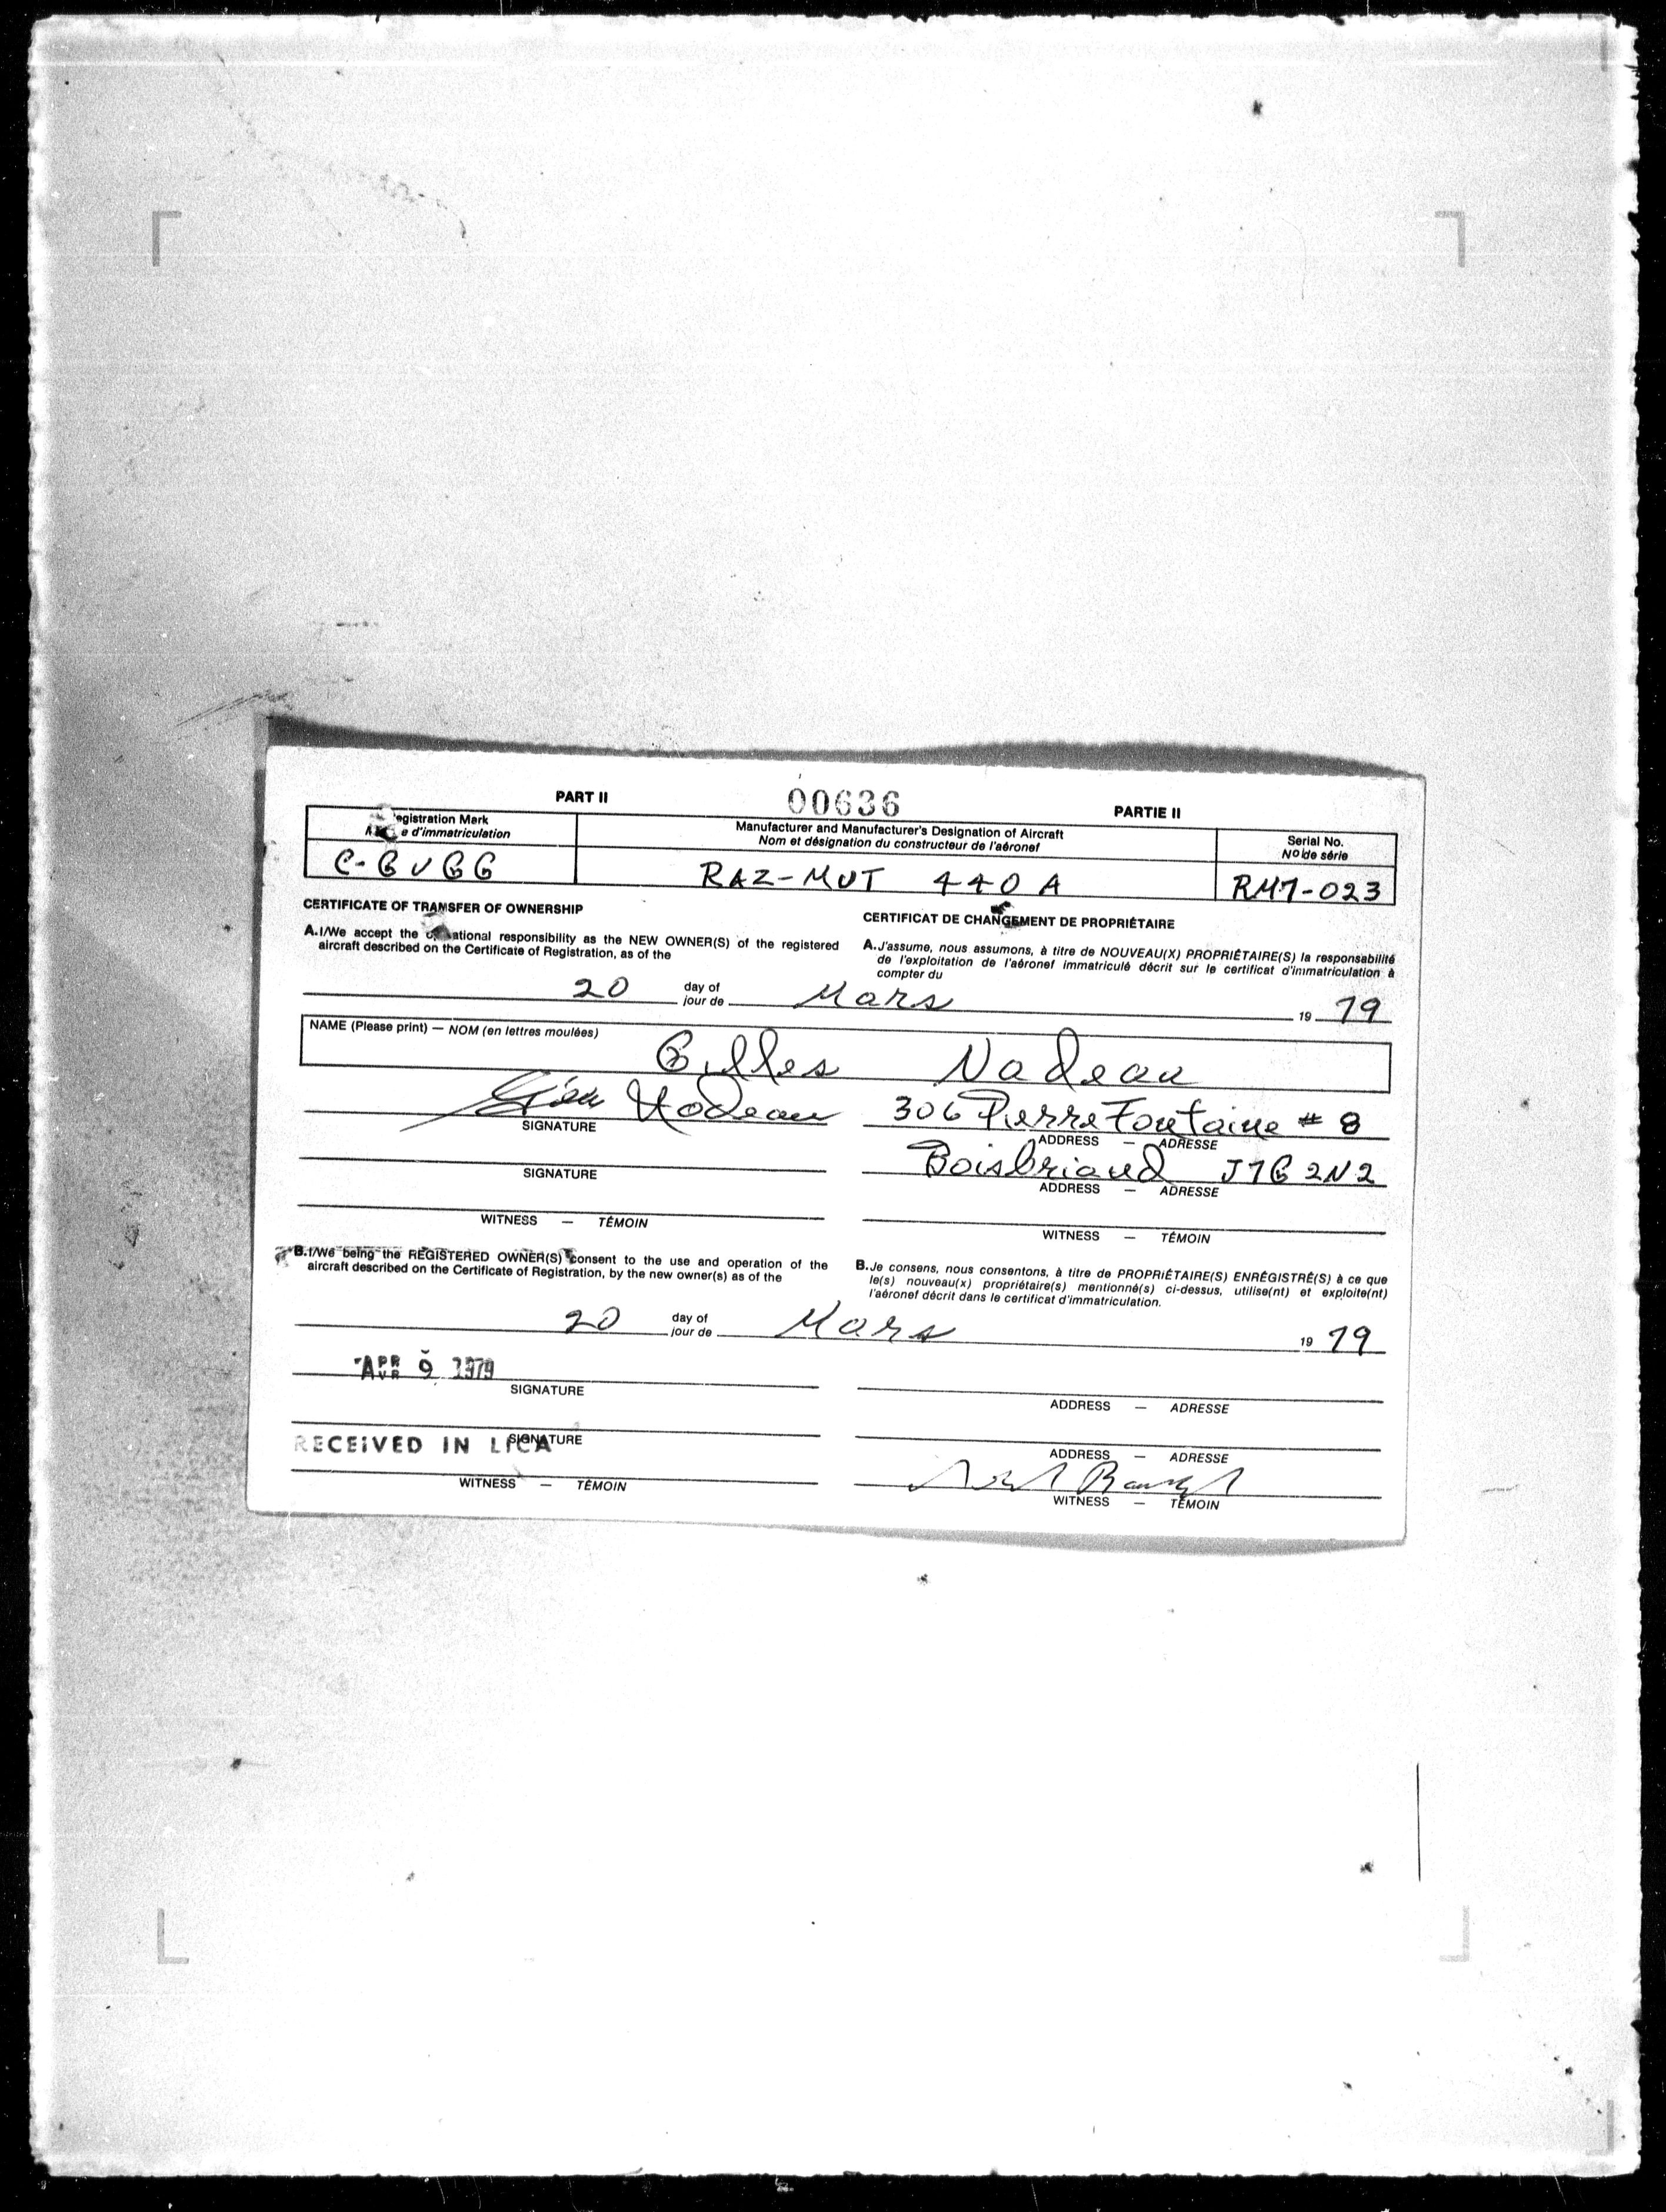 PART II 00636 PARTIE II
egistration Mark
e d'immatriculation
Manufacturer and Manufacturer's Designation of Aircraft
Nom et désignation du constructeur de l'aéronef
Serial No.
No de série
C-GVGG RAZ-MUT 440 A RM7-023
CERTIFICATE OF TRANSFER OF OWNERSHIP
A. I/We accept the ational responsibility as the NEW OWNER(S) of the registered
aircraft described on the Certificate of Registration, as of the
CERTIFICAT DE CHANGEMENT DE PROPRIÉTAIRE
A. J'assume, nous assumons, à titre de NOUVEAU(X) PROPRIÉTAIRE(S) la responsabilité
de l'exploitation de l'aéronef immatriculé décrit sur le certificat d'immatriculation à
compter du
20 day of Mars 19 79
jour de
NAME (Please print) — NOM (en lettres moulées)
Gilles Nadeau
Nadeau 306 Pierre Fontaine # 8
SIGNATURE ADDRESS — ADRESSE
Boisbriand J7G 2N2
SIGNATURE ADDRESS — ADRESSE
WITNESS — TÉMOIN WITNESS — TÉMOIN
B. I/We being the REGISTERED OWNER(S) consent to the use and operation of the
aircraft described on the Certificate of Registration, by the new owner(s) as of the
B. Je consens, nous consentons, à titre de PROPRIÉTAIRE(S) ENRÉGISTRÉ(S) à ce que
le(s) nouveau(x) propriétaire(s) mentionné(s) ci-dessus, utilise(nt) et exploite(nt)
l'aéronef décrit dans le certificat d'immatriculation.
20 day of Mars 19 79
jour de
APR 9 1979
AVR
SIGNATURE ADDRESS — ADRESSE
RECEIVED IN LICA
SIGNATURE ADDRESS — ADRESSE
WITNESS — TÉMOIN WITNESS — TÉMOIN